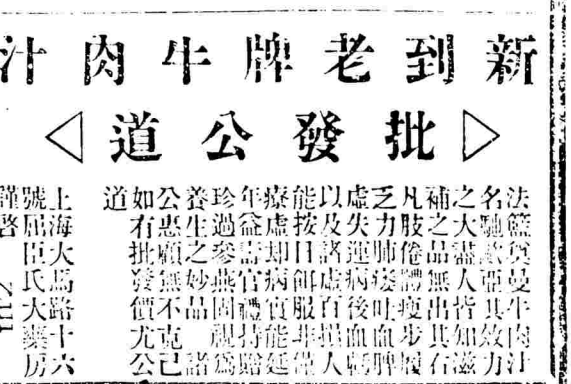 新到老牌牛肉汁
批發公道
曼牛肉汁
名馳歐亞其效力
之大盡人皆知滋
補之品無出其右
凡肢倦體瘦步履
乏力肺痿吐血脾
虛失運病後血虧
以及諸虛百損人
能按日餌服非僅
療虛却病實能延
年益壽官禮持贈
珍過參燕固視爲
養生之妙品 諸
公惠顧無不克己
如有批發價尤公
道
上海大馬路十六
號屈臣氏大藥房
謹啓